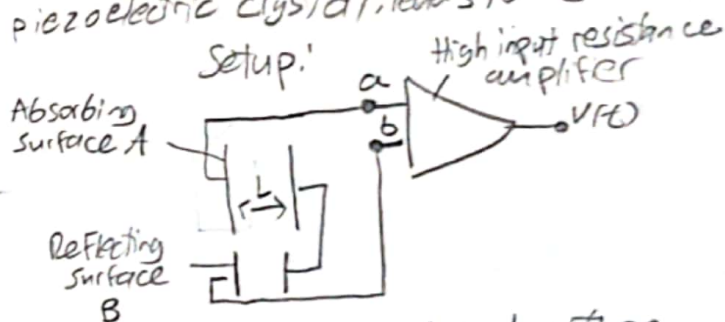 piezoelectric crystal,
Setup:
High input resistance
amplifer
Absorbing
surface A
a
b
V(t)
L
Reflecting
surface
B